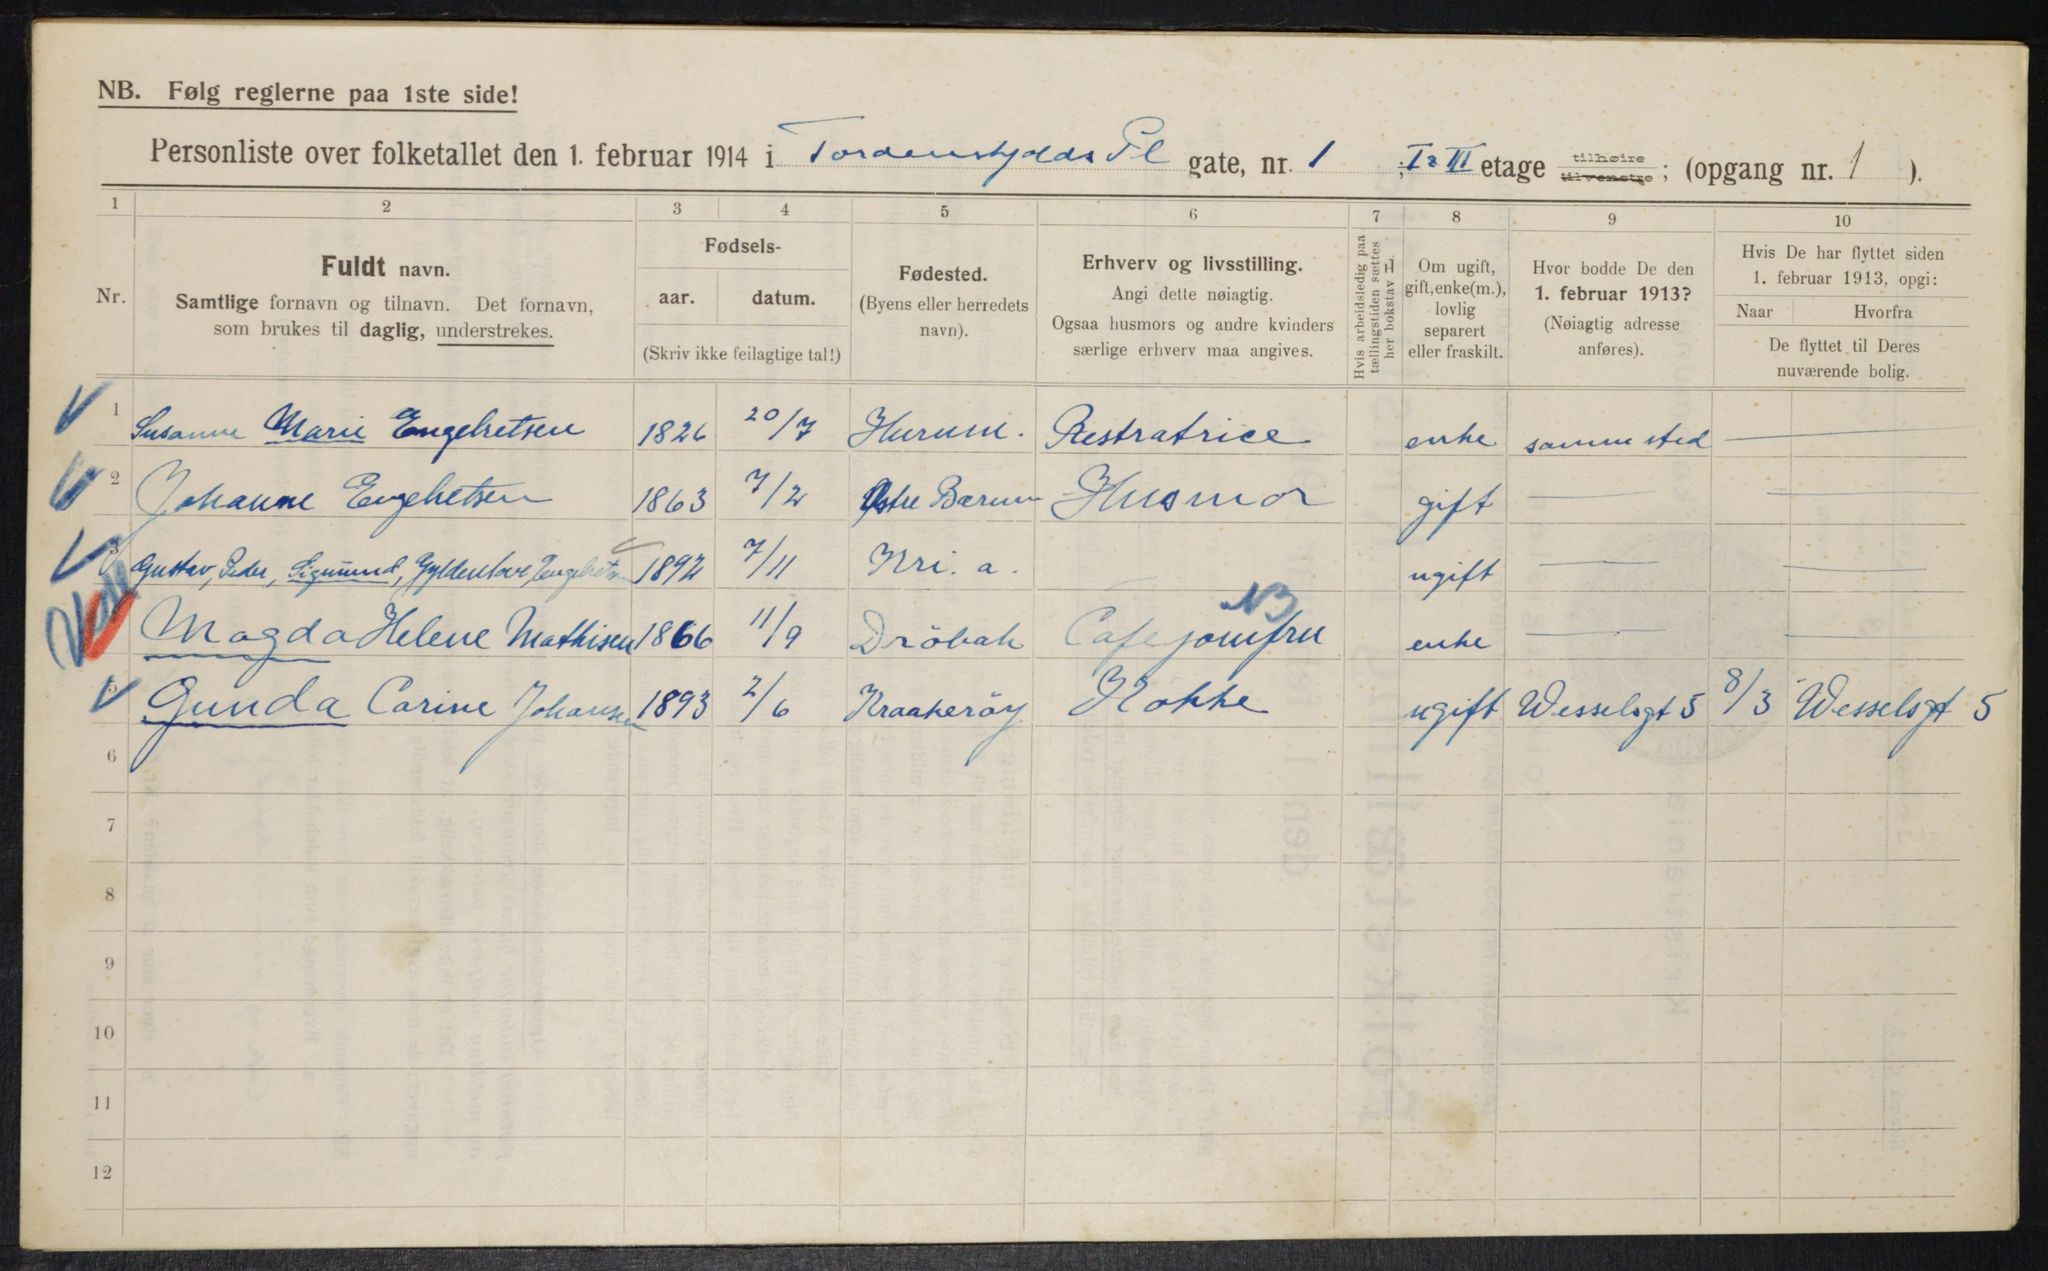 NB. Følg reglerne paa 1ste side!
Personliste over folketallet den 1. februar 1914 i Tordenskjolds Pl gate, nr. 1 ; I & III etage tilhøire tilvenstre ; (opgang nr. 1 ).
1 2 3 4 5 6 7 8 9 10
Nr.
Fuldt navn.
Samtlige fornavn og tilnavn. Det fornavn,
som brukes til daglig, understrekes.
Fødsels-
aar. datum.
(Skriv ikke feilagtige tal!)
Fødested.
(Byens eller herredets
navn).
Erhverv og livsstilling.
Angi dette nøiagtig.
Ogsaa husmors og andre kvinders
særlige erhverv maa angives.
Hvis arbeidsledig paa
tællingstiden sættes
her bokstav L.
Om ugift,
gift, enke(m.),
lovlig
separert
eller fraskilt.
Hvor bodde De den
1. februar 1913?
(Nøiagtig adresse
anføres).
Hvis De har flyttet siden
1. februar 1913, opgi:
Naar Hvorfra
De flyttet til Deres
nuværende bolig.
1 Susanne Marie Engebretsen 1826 20/7 Hurum. Restratrice enke sammested
2 Johanne Engebretsen 1863 7/2 Østre Bærum Husmor gift
3 Gustav, Peder, Sigmund, Gyldenløve Engebretsen 1892 7/11 Kri. a. ugift
Magda Helene Mathisen 1866 11/9 Dröbak Cafejomfru NB enke
5 Gunda Carine Johansen 1893 2/6 Kraakeröy Kokke ugift Wesselsgt 5 8/3 Wesselsgt 5
6
7
8
9
10
11
12